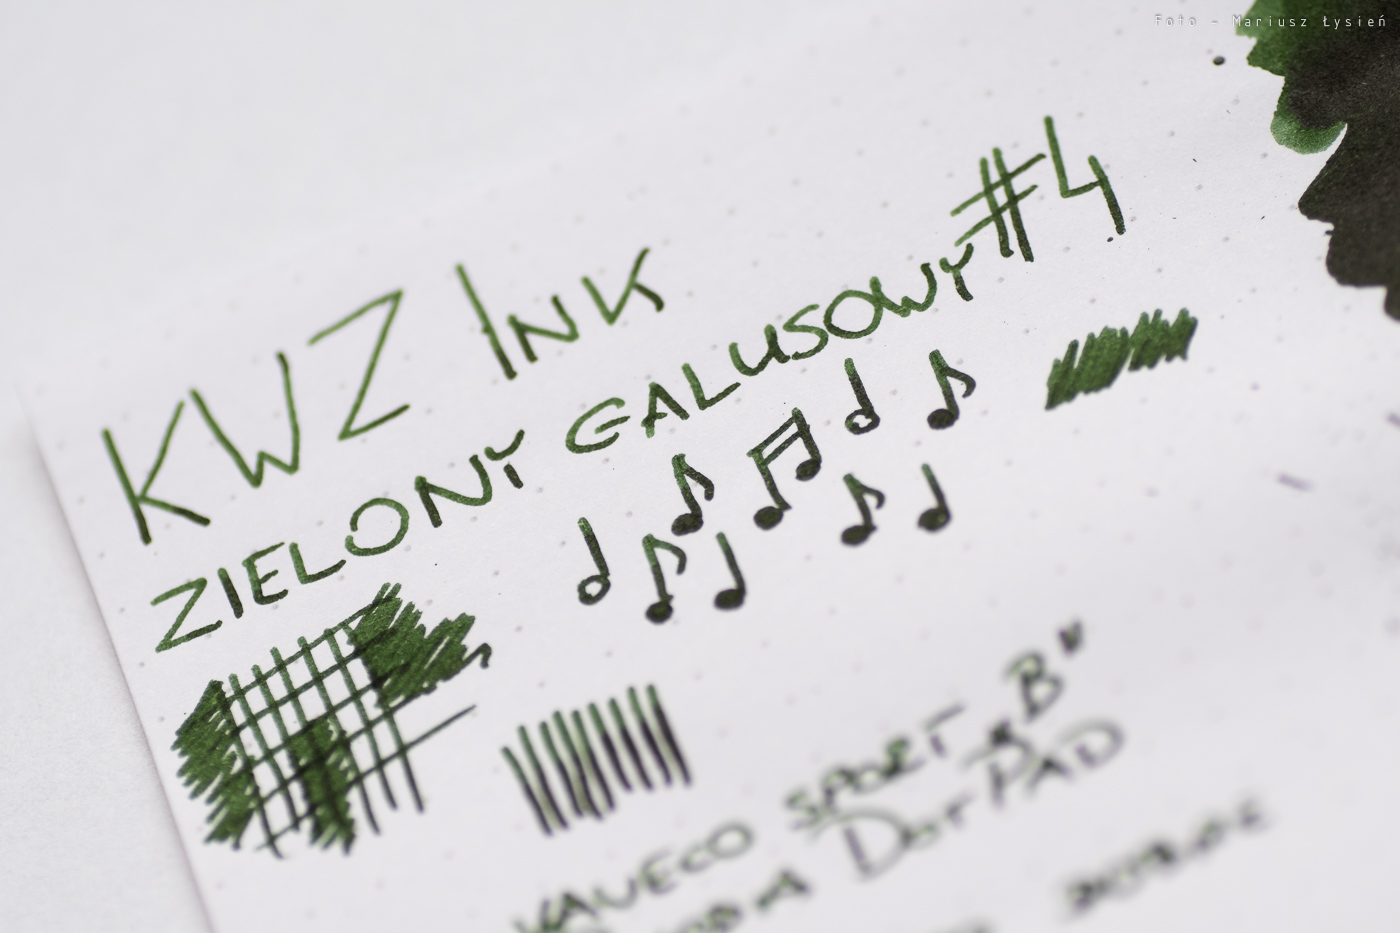 Foto - Mariusz Łysień
KWZ INK
ZIELONY GALUSOWY #4
KAWECO SPORT "B"
DOT PAD